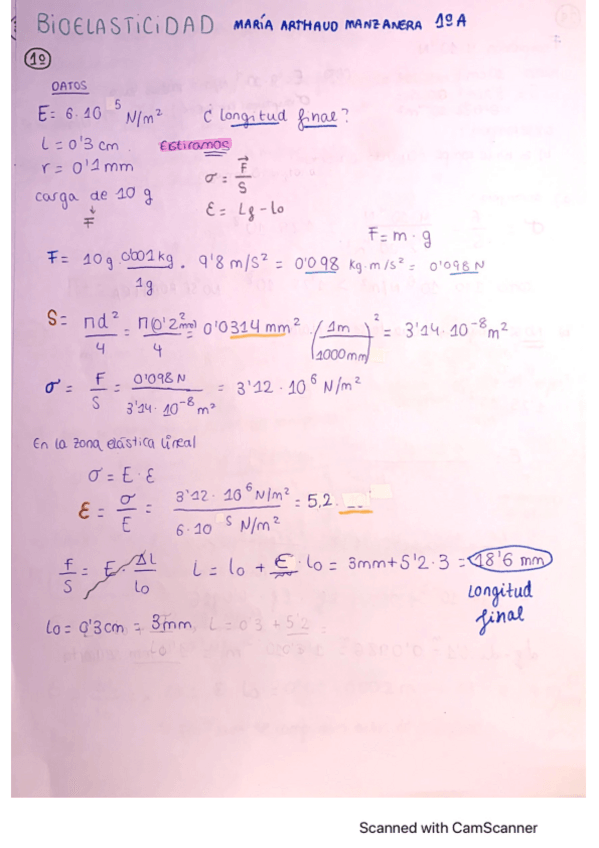 BIOELASTICIDAD MARÍA ARTHAUD MANZANERA 1ºA
1º
DATOS
E = 6·10⁵ N/m² ¿ longitud final?
L = 0'3 cm. Estiramos
r = 0'1 mm σ = F/S
carga de 10 g ε = Lf - lo
F
F = m · g
F = 10 g · 0'001 kg / 1g · 9'8 m/s² = 0'098 kg·m/s² = 0'098 N
S = πd²/4 = π(0'2mm)²/4 = 0'0314 mm² · (1m/1000mm)² = 3'14·10⁻⁸ m²
σ = F/S = 0'098 N / 3'14·10⁻⁸ m² = 3'12·10⁶ N/m²
En la zona elástica lineal
σ = E·ε
ε = σ/E = 3'12·10⁶ N/m² / 6·10⁵ N/m² = 5,2.
F/S = E · ΔL/lo L = lo + ε·lo = 3mm + 5'2·3 = 18'6 mm
longitud
final
lo = 0'3cm = 3mm, L = 0'3 + 5'2
Scanned with CamScanner